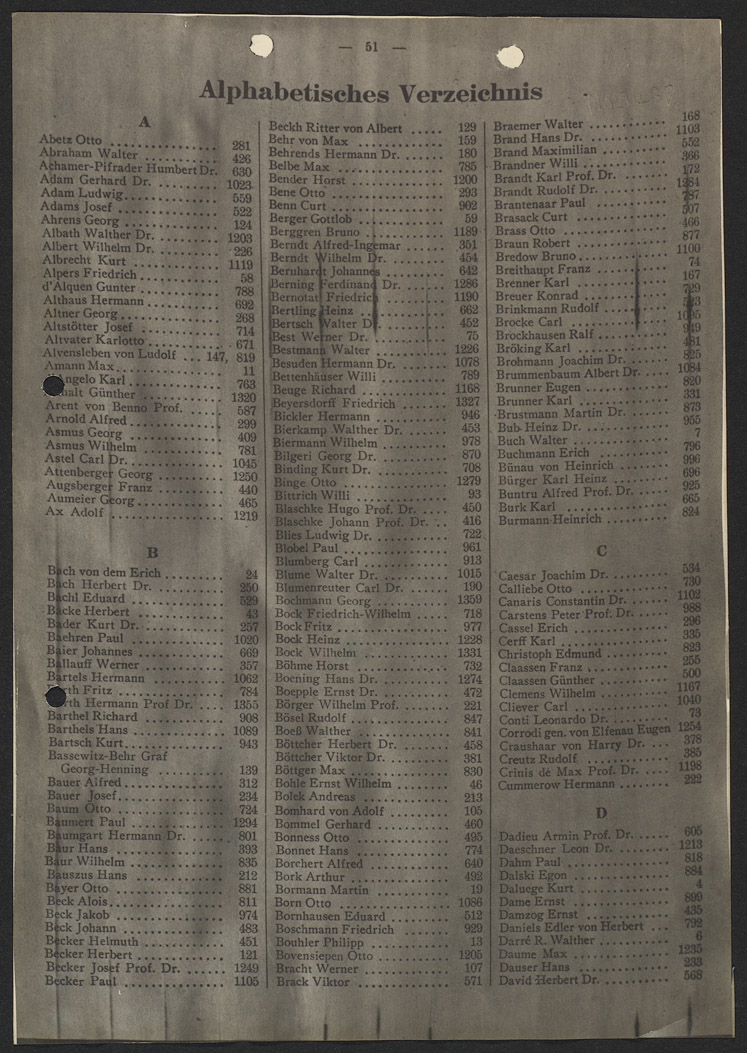 — 51 —
Alphabetisches Verzeichnis
A
Abetz Otto 281
Abraham Walter 426
Achamer-Pifrader Humbert Dr. 630
Adam Gerhard Dr. 1023
Adam Ludwig 559
Adams Josef 522
Ahrens Georg 124
Albath Walther Dr. 1203
Albert Wilhelm Dr. 226
Albrecht Kurt 1119
Alpers Friedrich 58
d'Alquen Gunter 788
Althaus Hermann 692
Altner Georg 268
Altstötter Josef 714
Altvater Karlotto 671
Alvensleben von Ludolf 147, 819
Amann Max 11
ngelo Karl 763
halt Günther 1320
Arent von Benno Prof. 587
Arnold Alfred 299
Asmus Georg 409
Asmus Wilhelm 781
Astel Carl Dr. 1045
Attenberger Georg 1250
Augsberger Franz 440
Aumeier Georg 465
Ax Adolf 1219
B
Bach von dem Erich 24
Bach Herbert Dr. 250
Bachl Eduard 529
Backe Herbert 43
Bader Kurt Dr. 257
Baehren Paul 1020
Baier Johannes 669
Ballauff Werner 357
Bartels Hermann 1062
Barth Fritz 784
rth Hermann Prof Dr. 1355
Barthel Richard 908
Barthels Hans 1089
Bartsch Kurt 943
Bassewitz-Behr Graf
Georg-Henning 139
Bauer Alfred 312
Bauer Josef 234
Baum Otto 724
Baumert Paul 1294
Baumgart Hermann Dr. 801
Baur Hans 393
Baur Wilhelm 835
Bauszus Hans 212
Bayer Otto 881
Beck Alois 811
Beck Jakob 974
Beck Johann 483
Becker Helmuth 451
Becker Herbert 121
Becker Josef Prof. Dr. 1249
Becker Paul 1105
Beckh Ritter von Albert 129
Behr von Max 159
Behrends Hermann Dr. 180
Belbe Max 785
Bender Horst 1200
Bene Otto 293
Benn Curt 902
Berger Gottlob 59
Berggren Bruno 1189
Berndt Alfred-Ingemar 351
Berndt Wilhelm Dr. 454
Bernhardt Johannes 642
Berning Ferdinand Dr. 1286
Bernotat Friedrich 1190
Bertling Heinz 662
Bertsch Walter Dr. 452
Best Werner Dr. 75
Bestmann Walter 1226
Besuden Hermann Dr. 1078
Bettenhäuser Willi 789
Beuge Richard 1168
Beyersdorff Friedrich 1327
Bickler Hermann 946
Bierkamp Walther Dr. 453
Biermann Wilhelm 978
Bilgeri Georg Dr. 870
Binding Kurt Dr. 708
Binge Otto 1279
Bittrich Willi 93
Blaschke Hugo Prof. Dr. 450
Blaschke Johann Prof. Dr. 416
Blies Ludwig Dr. 722
Blobel Paul 961
Blumberg Carl 913
Blume Walter Dr. 1015
Blumenreuter Carl Dr. 190
Bochmann Georg 1359
Bock Friedrich-Wilhelm 718
Bock Fritz 977
Bock Heinz 1228
Bock Wilhelm 1331
Böhme Horst 732
Boening Hans Dr. 1274
Boepple Ernst Dr. 472
Börger Wilhelm Prof. 221
Bösel Rudolf 847
Boeß Walther 841
Böttcher Herbert Dr. 458
Böttcher Viktor Dr. 381
Böttger Max 830
Bohle Ernst Wilhelm 46
Bolek Andreas 213
Bomhard von Adolf 105
Bommel Gerhard 460
Bonness Otto 495
Bonnet Hans 774
Borchert Alfred 640
Bork Arthur 492
Bormann Martin 19
Born Otto 1086
Bornhausen Eduard 512
Boschmann Friedrich 929
Bouhler Philipp 13
Bovensiepen Otto 1205
Bracht Werner 107
Brack Viktor 571
Braemer Walter 168
Brand Hans Dr. 1103
Brand Maximilian 552
Brandner Willi 366
Brandt Karl Prof. Dr. 172
Brandt Rudolf Dr. 1284
Brantenaar Paul 787
Brasack Curt 507
Brass Otto 466
Braun Robert 877
Bredow Bruno 1100
Breithaupt Franz 74
Brenner Karl 167
Breuer Konrad 729
Brinkmann Rudolf
Brocke Carl
Brockhausen Ralf 949
Bröking Karl 481
Brohmann Joachim Dr. 825
Brummenbaum Albert Dr. 1084
Brunner Eugen 820
Brunner Karl 331
Brustmann Martin Dr. 873
Bub Heinz Dr. 955
Buch Walter 7
Buchmann Erich 796
Bünau von Heinrich 996
Bürger Karl Heinz 696
Buntru Alfred Prof. Dr. 925
Burk Karl 665
Burmann Heinrich 824
C
Caesar Joachim Dr. 534
Calliebe Otto 730
Canaris Constantin Dr. 1102
Carstens Peter Prof. Dr. 988
Cassel Erich 296
Cerff Karl 335
Christoph Edmund 823
Claassen Franz 255
Claassen Günther 500
Clemens Wilhelm 1167
Cliever Carl 1040
Conti Leonardo Dr. 73
Corrodi gen. von Elfenau Eugen 1254
Craushaar von Harry Dr. 378
Creutz Rudolf 385
Crinis de Max Prof. Dr. 1198
Cummerow Hermann 222
D
Dadieu Armin Prof. Dr. 605
Daeschner Leon Dr. 1213
Dahm Paul 818
Dalski Egon 884
Daluege Kurt 4
Dame Ernst 899
Damzog Ernst 435
Daniels Edler von Herbert 792
Darré R. Walther 6
Daume Max 1235
Dauser Hans 233
David Herbert Dr. 568